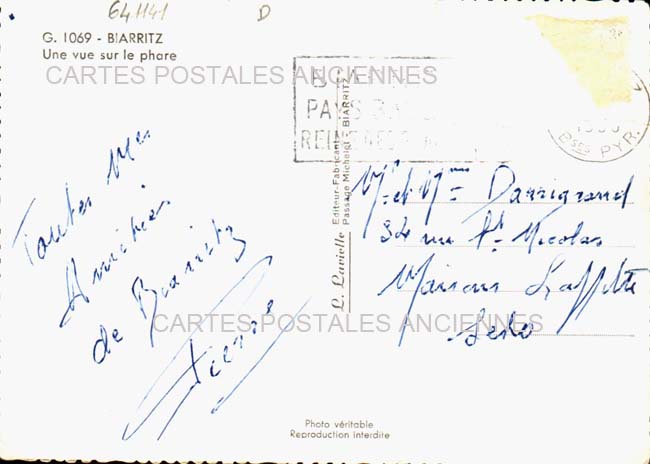 64 1141 D
G. 1069 - BIARRITZ
Une vue sur le phare
CARTES POSTALES ANCIENNES
PAYS BA
REINE DES
Bses PYR.
Toutes mes
Amitiés
de Biarritz
Pierre
L. Lavielle
Editeur-Fabricant
Passage Michelet - BIARRITZ
Mr et Mme Darrigrand
34 rue St Nicolas
Maisons Laffitte
CARTES POSTALES ANCIENNES
Photo véritable
Reproduction interdite